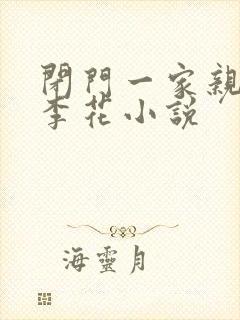 閉門一家親
李花小説
海靈月